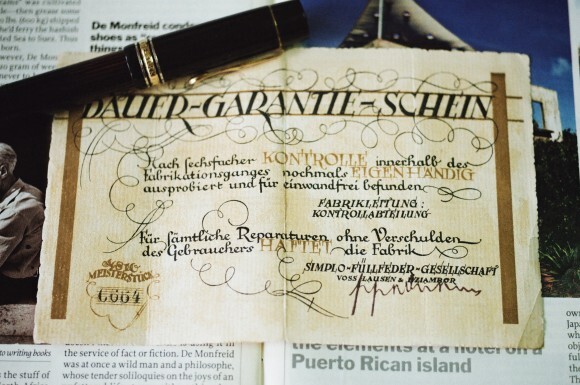 then grease some
lbs. (600 kg) shipped
ferry the hashish
ed Sea to Suez. Thus
born.
De Monfreid
shoes as
things
DAUER-GARANTIE-SCHEIN
Nach sechsfacher KONTROLLE innerhalb des
Fabrikationsganges nochmals EIGENHÄNDIG
ausprobiert und für einwandfrei befunden
FABRIKLEITUNG:
KONTROLLABTEILUNG
Für sämtliche Reparaturen ohne Verschulden
des Gebrauchers HAFTET die Fabrik
SIMPLO-FÜLLFEDER-GESELLSCHAFT
VOSS, LAUSEN & DZIAMBOR
MEISTERSTÜCK
L 664
to writing books
the stuff of
the service of fact or fiction. De Monfreid
was at once a wild man and a philosophe,
whose tender soliloquies on the joys of an
the elements at a hotel on a
Puerto Rican island